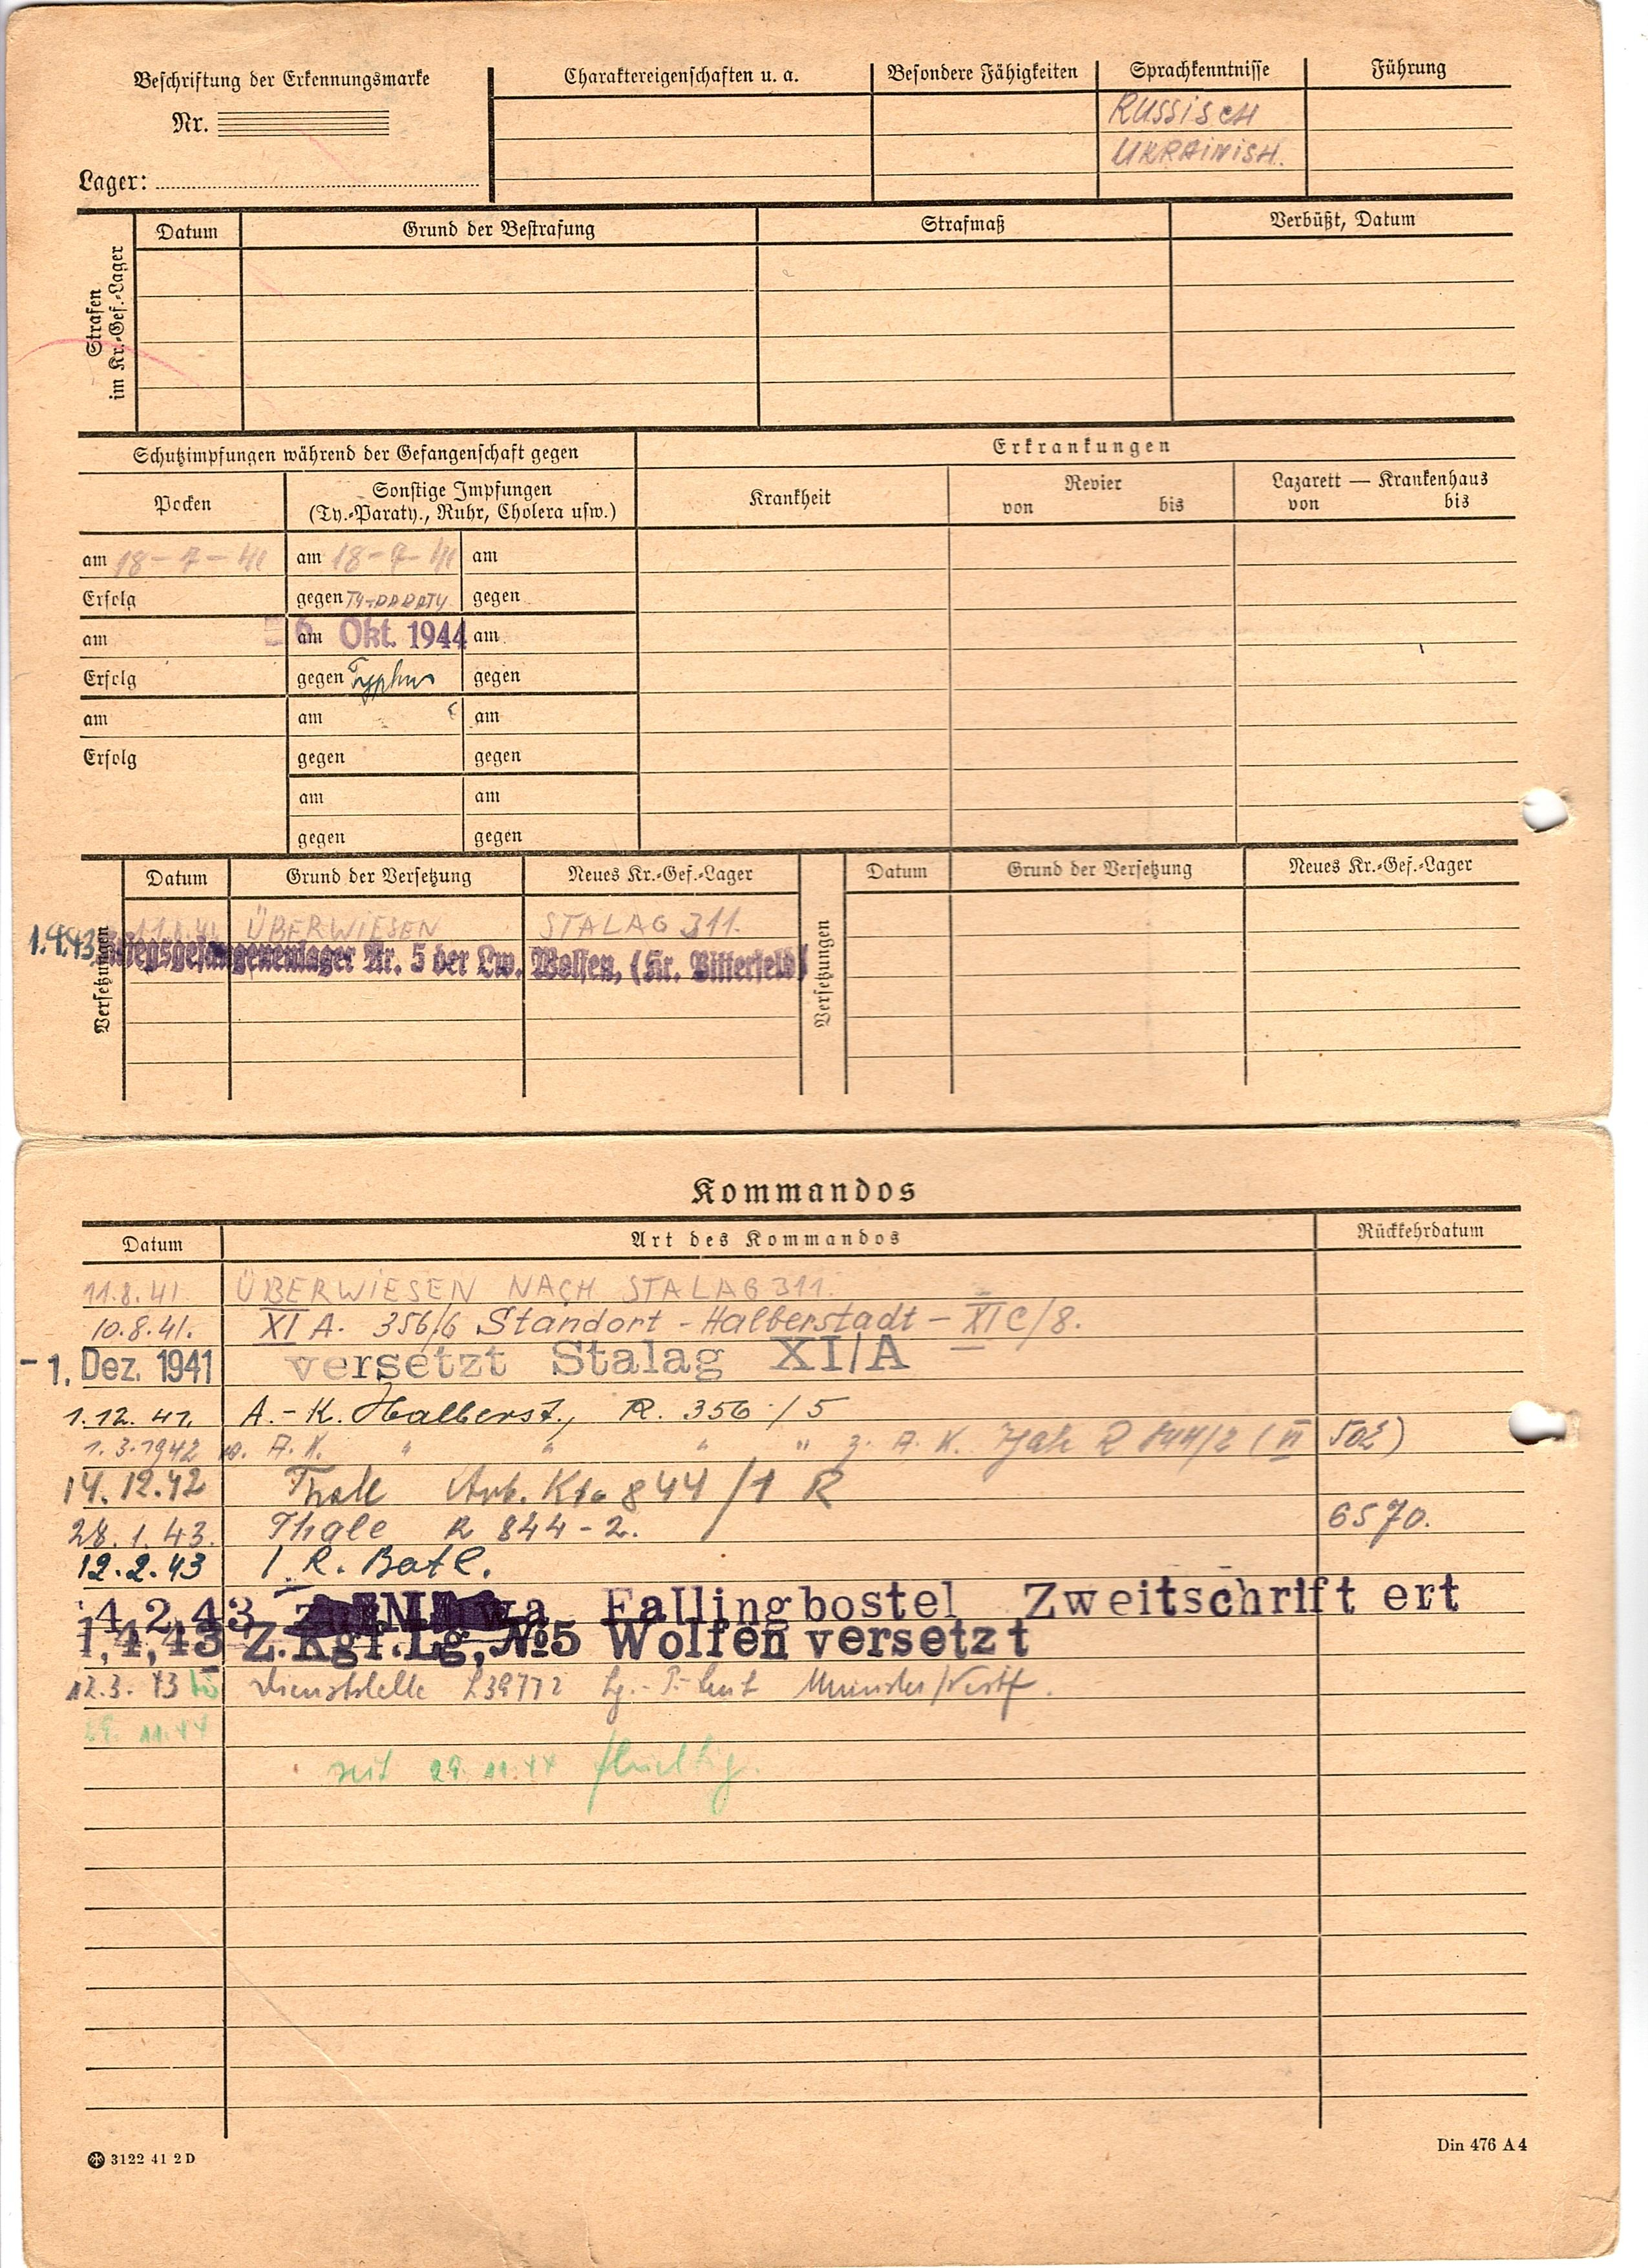 Beschriftung der Erkennungsmarke
Nr.
Lager:
Charaktereigenschaften u. a.
Besondere Fähigkeiten
Sprachkenntnisse
Führung
RUSSISCH
UKRAINISH.
Strafen
im Kr.-Gef.-Lager
Datum
Grund der Bestrafung
Strafmaß
Verbüßt, Datum
Schutzimpfungen während der Gefangenschaft gegen
Erkrankungen
Pocken
Sonstige Impfungen
(Ty.-Paraty., Ruhr, Cholera usw.)
Krankheit
Revier
von bis
Lazarett — Krankenhaus
von bis
am 18-7-41 am 18-7-41 am
Erfolg gegen TY-PARATY gegen
am am Okt. 1944 am
Erfolg gegen Typhus gegen
am am am
Erfolg gegen gegen
am am
gegen gegen
Versetzungen
Datum Grund der Versetzung Neues Kr.-Gef.-Lager
Versetzungen
Datum Grund der Versetzung Neues Kr.-Gef.-Lager
11.8.41 ÜBERWIESEN STALAG 311.
1.4.43 Kriegsgefangenenlager Nr. 5 der Lw. Wolfen, (Kr. Bitterfeld)
Kommandos
Datum Art des Kommandos Rückkehrdatum
11.8.41. ÜBERWIESEN NACH STALAG 311.
10.8.41. XI A. 356/6 Standort - Halberstadt - XI C/8.
-1. Dez. 1941 versetzt Stalag XI/A
1.12.41. A.-K. Halberst., R. 356/5
1.3.1942 v. A.K. " " " " z. A. K. R 844/2 (VI 502)
14.12.42 Thale Arb. Kdo 844/1 R
28.1.43. Thale R 844-2. 6570.
12.2.43 I. R. Batl.
4.2.43 Fallingbostel Zweitschrift ert
1,4,43 Z.Kgf.Lg,№5 Wolfen versetzt
12.3.43 bis Dienststelle L39772 Münster/Westf.
29.11.44
seit 29.11.44 flüchtig.
3122 41 2 D
Din 476 A 4